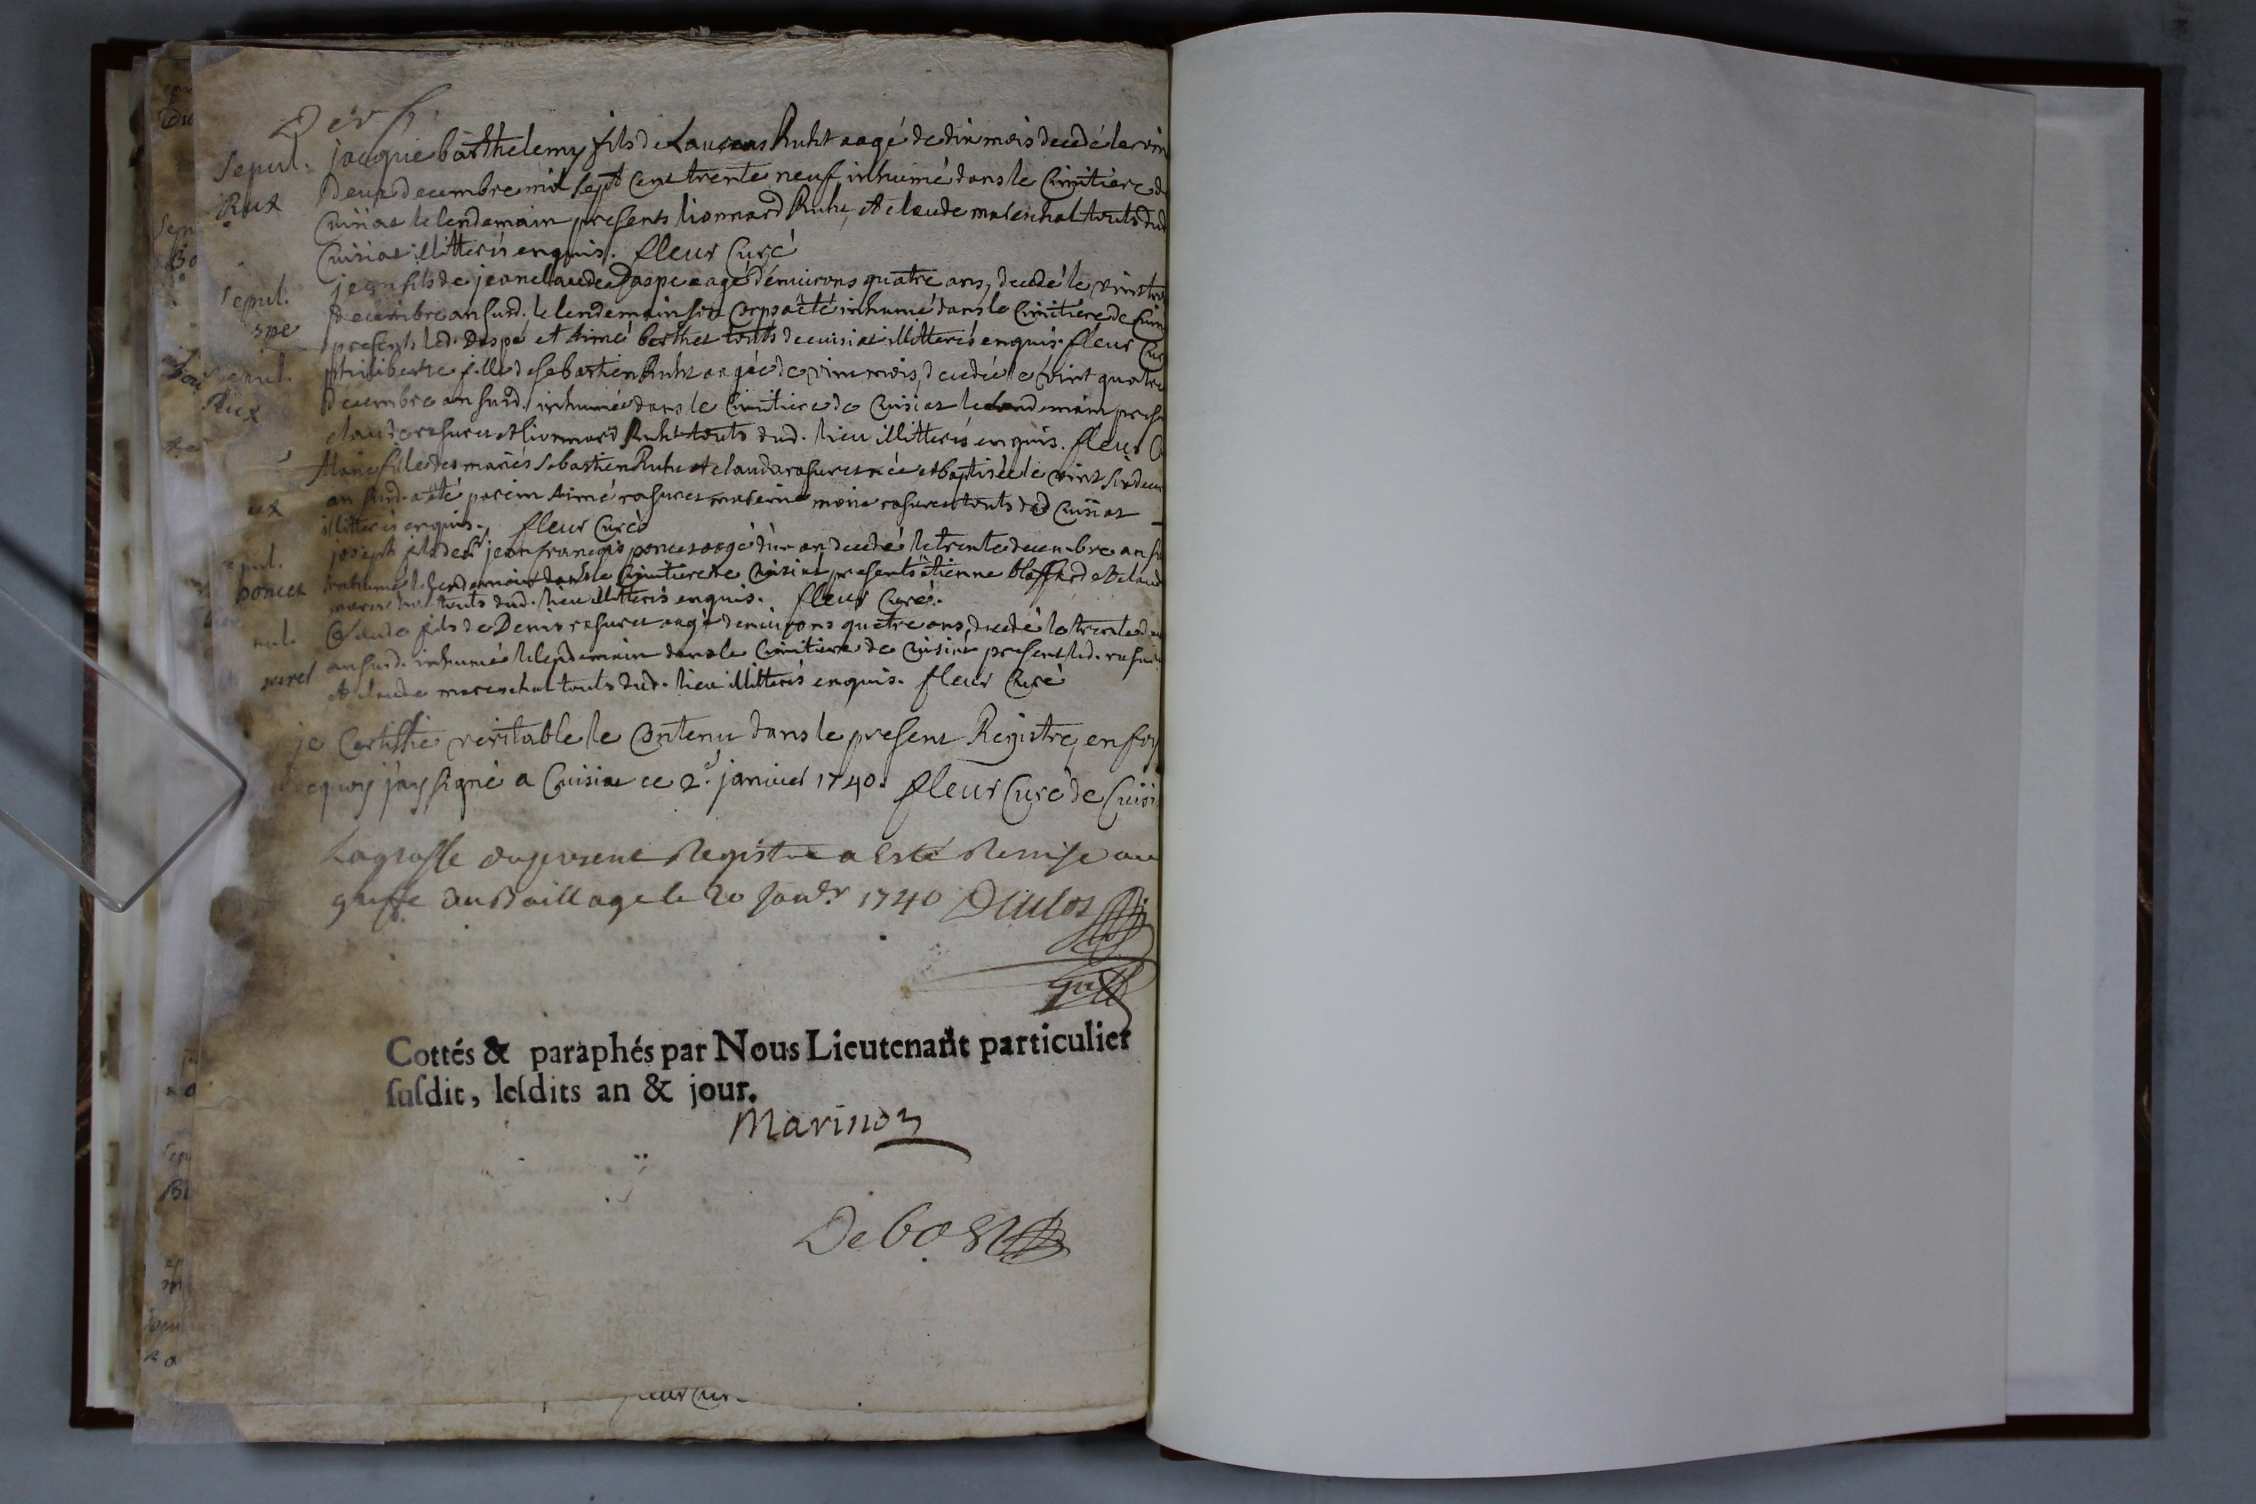 Sepul. jacque barthelemy fils de Laurens Ruht aagé de dix mois decedé le vin
Rux deux decembre mil sept cent trente neuf inhumé dans le Cimitiere de
Cuisiat le lendemain presents lionnard Ruht, et claude mareschal touts dud
Cuisiat illitterés enquis. fleur Curé
Sepul. jean fils de jean claude Daspe aagé d'environs quatre ans, decedé le vint
spe decembre an susd. le lendemain son corps a été inhumé dans le Cimitiere de Cuisi
presents led. Daspe et Aimé berthet touts de cuisiat illitterés enquis. fleur Cur
Sepul. philiberte fille de Sebastien Ruht aagée de mois, decedée le vint quatre
Rux decembre an susd. inhumée dans le Cimitiere de Cuisiat le lendemain prese
claude rasurel et lionnard Ruht touts dud. lieu illitterés enquis. fleur C
Marie fille des mariés Sebastien Ruht et clauda rasurel née et baptisée le vint six decem
ux an susd. a été parein Aimé rasurel mareine marie rasurel touts dud Cuisiat
illitterés enquis. fleur Curé
joseph fils de Sr jean françois poncet aagé d'un an decedé le trente decembre an su
pul. poncet inhumé le lendemain dans le Cimitiere de Cuisiat presents étienne blaffard et claude
mareschal touts dud. lieu illitterés enquis. fleur Curé.
pul. Claude fils de Denis rasurel aagé d'environs quatre ans, decedé le trente de
surel an susd. inhumé le lendemain dans le Cimitiere de Cuisiat present led. rasu
et claude mareschal touts dud. lieu illitterés enquis. fleur Curé
je Certiffie veritable le Contenu dans le present Registre, en foy
equoy j'ay signé a Cuisiat ce 2e. janvier 1740. fleur Curé de Cuisi
La grosse du present Registre a esté Remise au
greffe du Baillage le 20 Janvr 1740
Cottés & paraphés par Nous Lieutenant particulier
susdit, lesdits an & jour.
Marinon
Debost